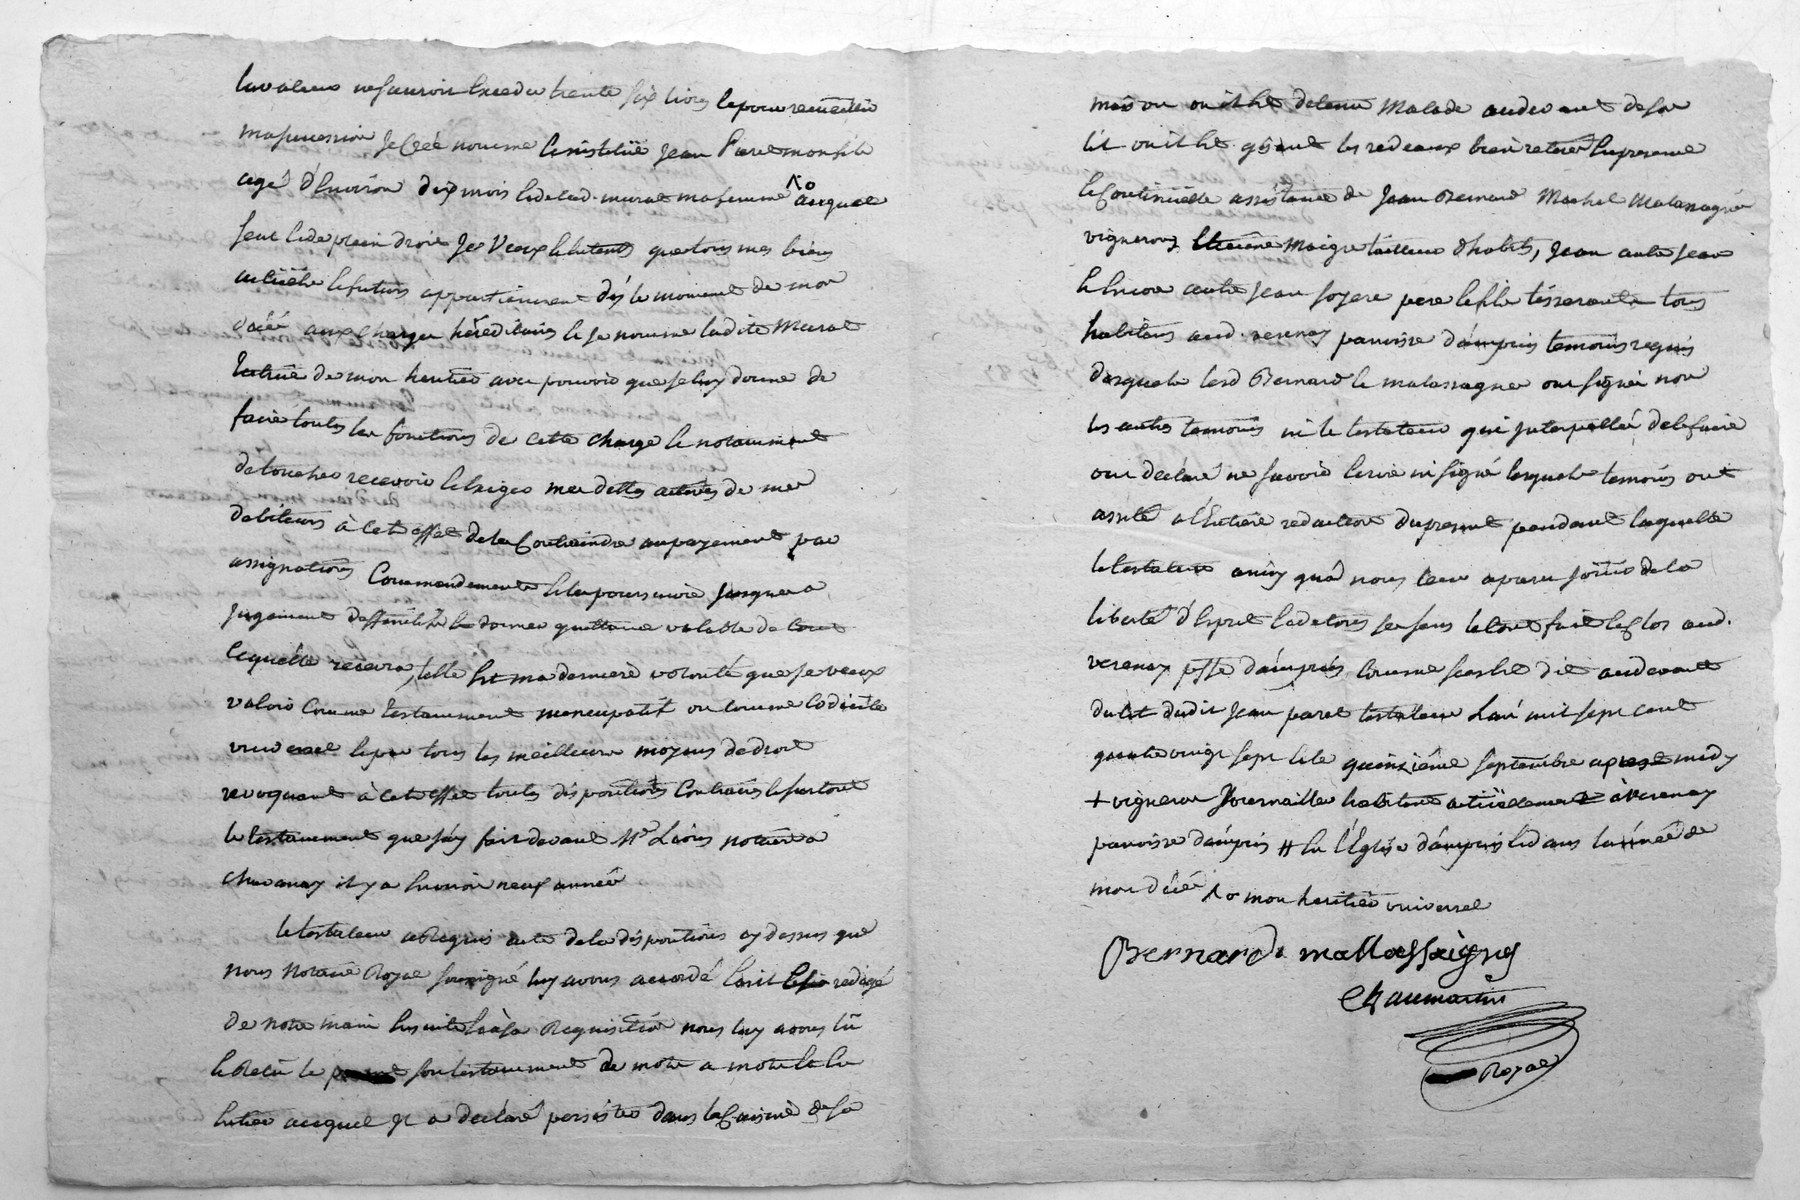 la valeur ne sauroit Exceder trente six livres Et pour recueillir
ma succession Je Créé nomme Et institüe Jean Paret mon fils
agé d'Environ dix mois Et de lad. murat ma femme ⁁o auquel
seul Et de plein droit Je Veux Et Entends que tous mes biens
actüels Et futurs appartiennent dés le moment de mon
décéé aux charges héréditaires Et Je nomme ladite Murat
Tutrice de mon heritier avec pouvoir que Je luy donne de
faire toutes les fonctions de cette charge Et notamment
de toucher recevoir Et Exiger mes dettes actives de mes
debiteurs à Cet effet de les Contraindre au payement par
assignations Commandements Et les poursuivre Jusques a
Jugement deffinitif Et donner quittance valable de tout
Ce qu'elle recevra, telle Est ma derniere volonté que Je veux
valoir Comme Testamment noncupatif ou Comme Codicille
Et par tous les meilleurs moyens de droit
revoquant à Cet Effet toutes dispositions Contraires Et surtout
le testamment que J'ay fait devant Me Lioris notaire a
chavanay il y a Environ neuf année
Le testateur a Requis acte de la dispositions cy dessus que
nous Notaire Royal soussigné luy avons accordé Ecrit Et redigé
de notre main Ensuite Et à sa Requisition nous luy avons lû
Et Relû le son testamment de mots a mots Et
Entier auquel Il a déclaré persister dans la de sa
maison ou il Est detenu Malade au devant de son
lit ou il Est gisant les rideaux bien retirés En presence
Et Continüelle assistance de Jean Bernard Michel Malassagne
vignerons Etienne Maigre tailleur d'habits, Jean autre Jean
Et Encore autre Jean soyere pere Et fils tisserants tous
habitans aud. verenay paroisse d'ampuis temoins requis
desquels lesd Bernard Et malassagne ont signés non
les autres temoins ni le testateur qui Interpellés de le faire
ont declaré ne savoir Ecrire ni signé lesquels temoins ont
assisté a l'Entiere redaction du present pendant laquelle
le testateur ainsy qu'à nous leur a paru Jouir de la
liberté d'Esprit Et de tous ses sens Le tout fait Et Clos aud.
verenay psse d'ampuis Comme sest Et dit au devant
du Lit dudit Jean paret testateur L'an mil sept cent
quatre vingt sept Et le quinzieme septembre apres midy
+ vigneron Journaillier habitant actüellement à Verenay
paroisse d'ampuis # En l'Eglise d'ampuis Et dans l'année de
mon décéé ⁁o mon heritier universel
Bernard mallassaignes
Chaumartin
Royal